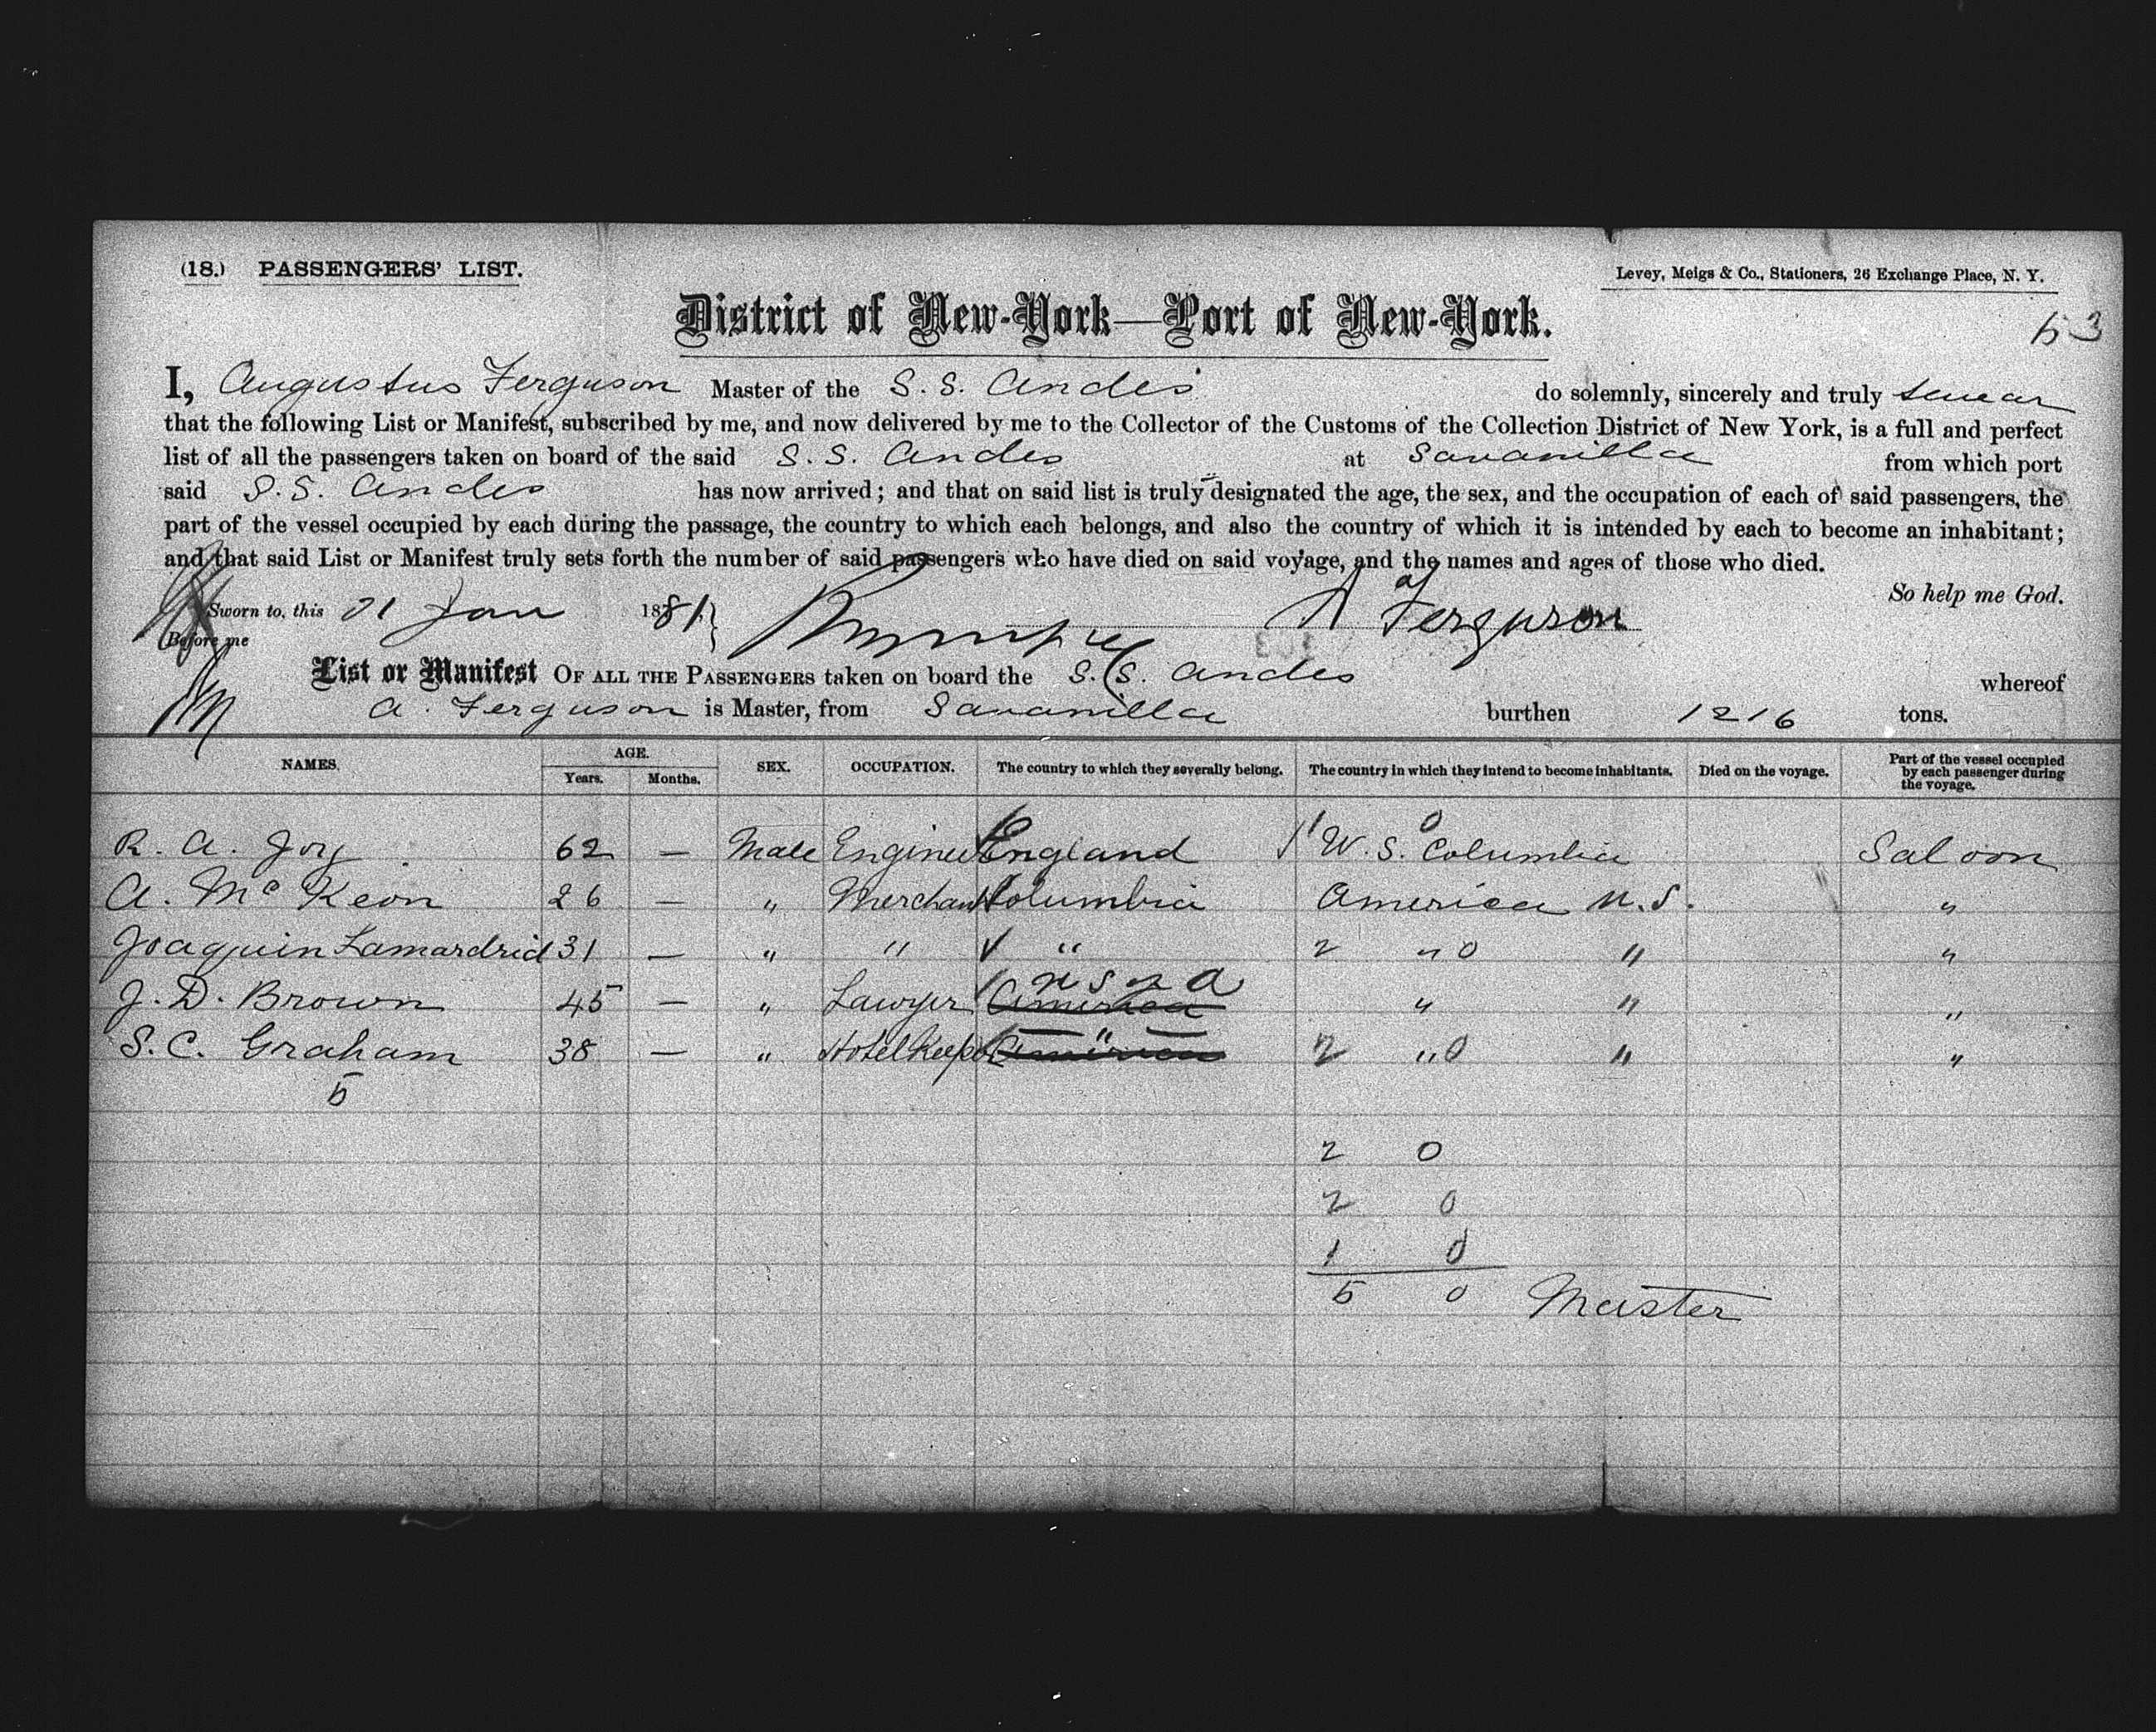 (18.) PASSENGERS' LIST.
Levey, Meigs & Co., Stationers, 26 Exchange Place, N. Y.
District of New-York—Port of New-York.
53
I, Augustus Ferguson Master of the S. S. Andes do solemnly, sincerely and truly swear
that the following List or Manifest, subscribed by me, and now delivered by me to the Collector of the Customs of the Collection District of New York, is a full and perfect
list of all the passengers taken on board of the said S. S. Andes at Savanilla from which port
said S. S. Andes has now arrived; and that on said list is truly designated the age, the sex, and the occupation of each of said passengers, the
part of the vessel occupied by each during the passage, the country to which each belongs, and also the country of which it is intended by each to become an inhabitant;
and that said List or Manifest truly sets forth the number of said passengers who have died on said voyage, and the names and ages of those who died.
So help me God.
Sworn to, this 31 Jan 1881 A Ferguson
Before me
List or Manifest OF ALL THE PASSENGERS taken on board the S. S. Andes whereof
A. Ferguson is Master, from Savanilla burthen 1216 tons.
NAMES. AGE. Years. Months. SEX. OCCUPATION. The country to which they severally belong. The country in which they intend to become inhabitants. Died on the voyage. Part of the vessel occupied by each passenger during the voyage.
R. A. Joy 62 — Male Engineer England 1 U. S. Columbia 0 Saloon
A. McKeon 26 — " Merchant Columbia America U. S. "
Joaquin Lamardrid 31 — " " " 2 " 0 " "
J. D. Brown 45 — " Lawyer America U S of A " " "
S. C. Graham 38 — " Hotel Keeper America " 2 " 0 " "
5
2 0
2 0
1 0
5 0 Master